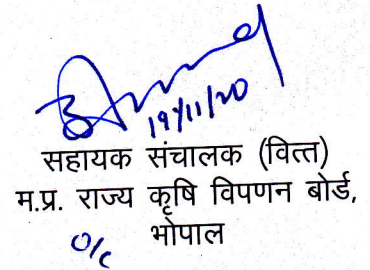 19/11/20
सहायक संचालक (वित्त)
म.प्र. राज्य कृषि विपणन बोर्ड,
भोपाल
O/c